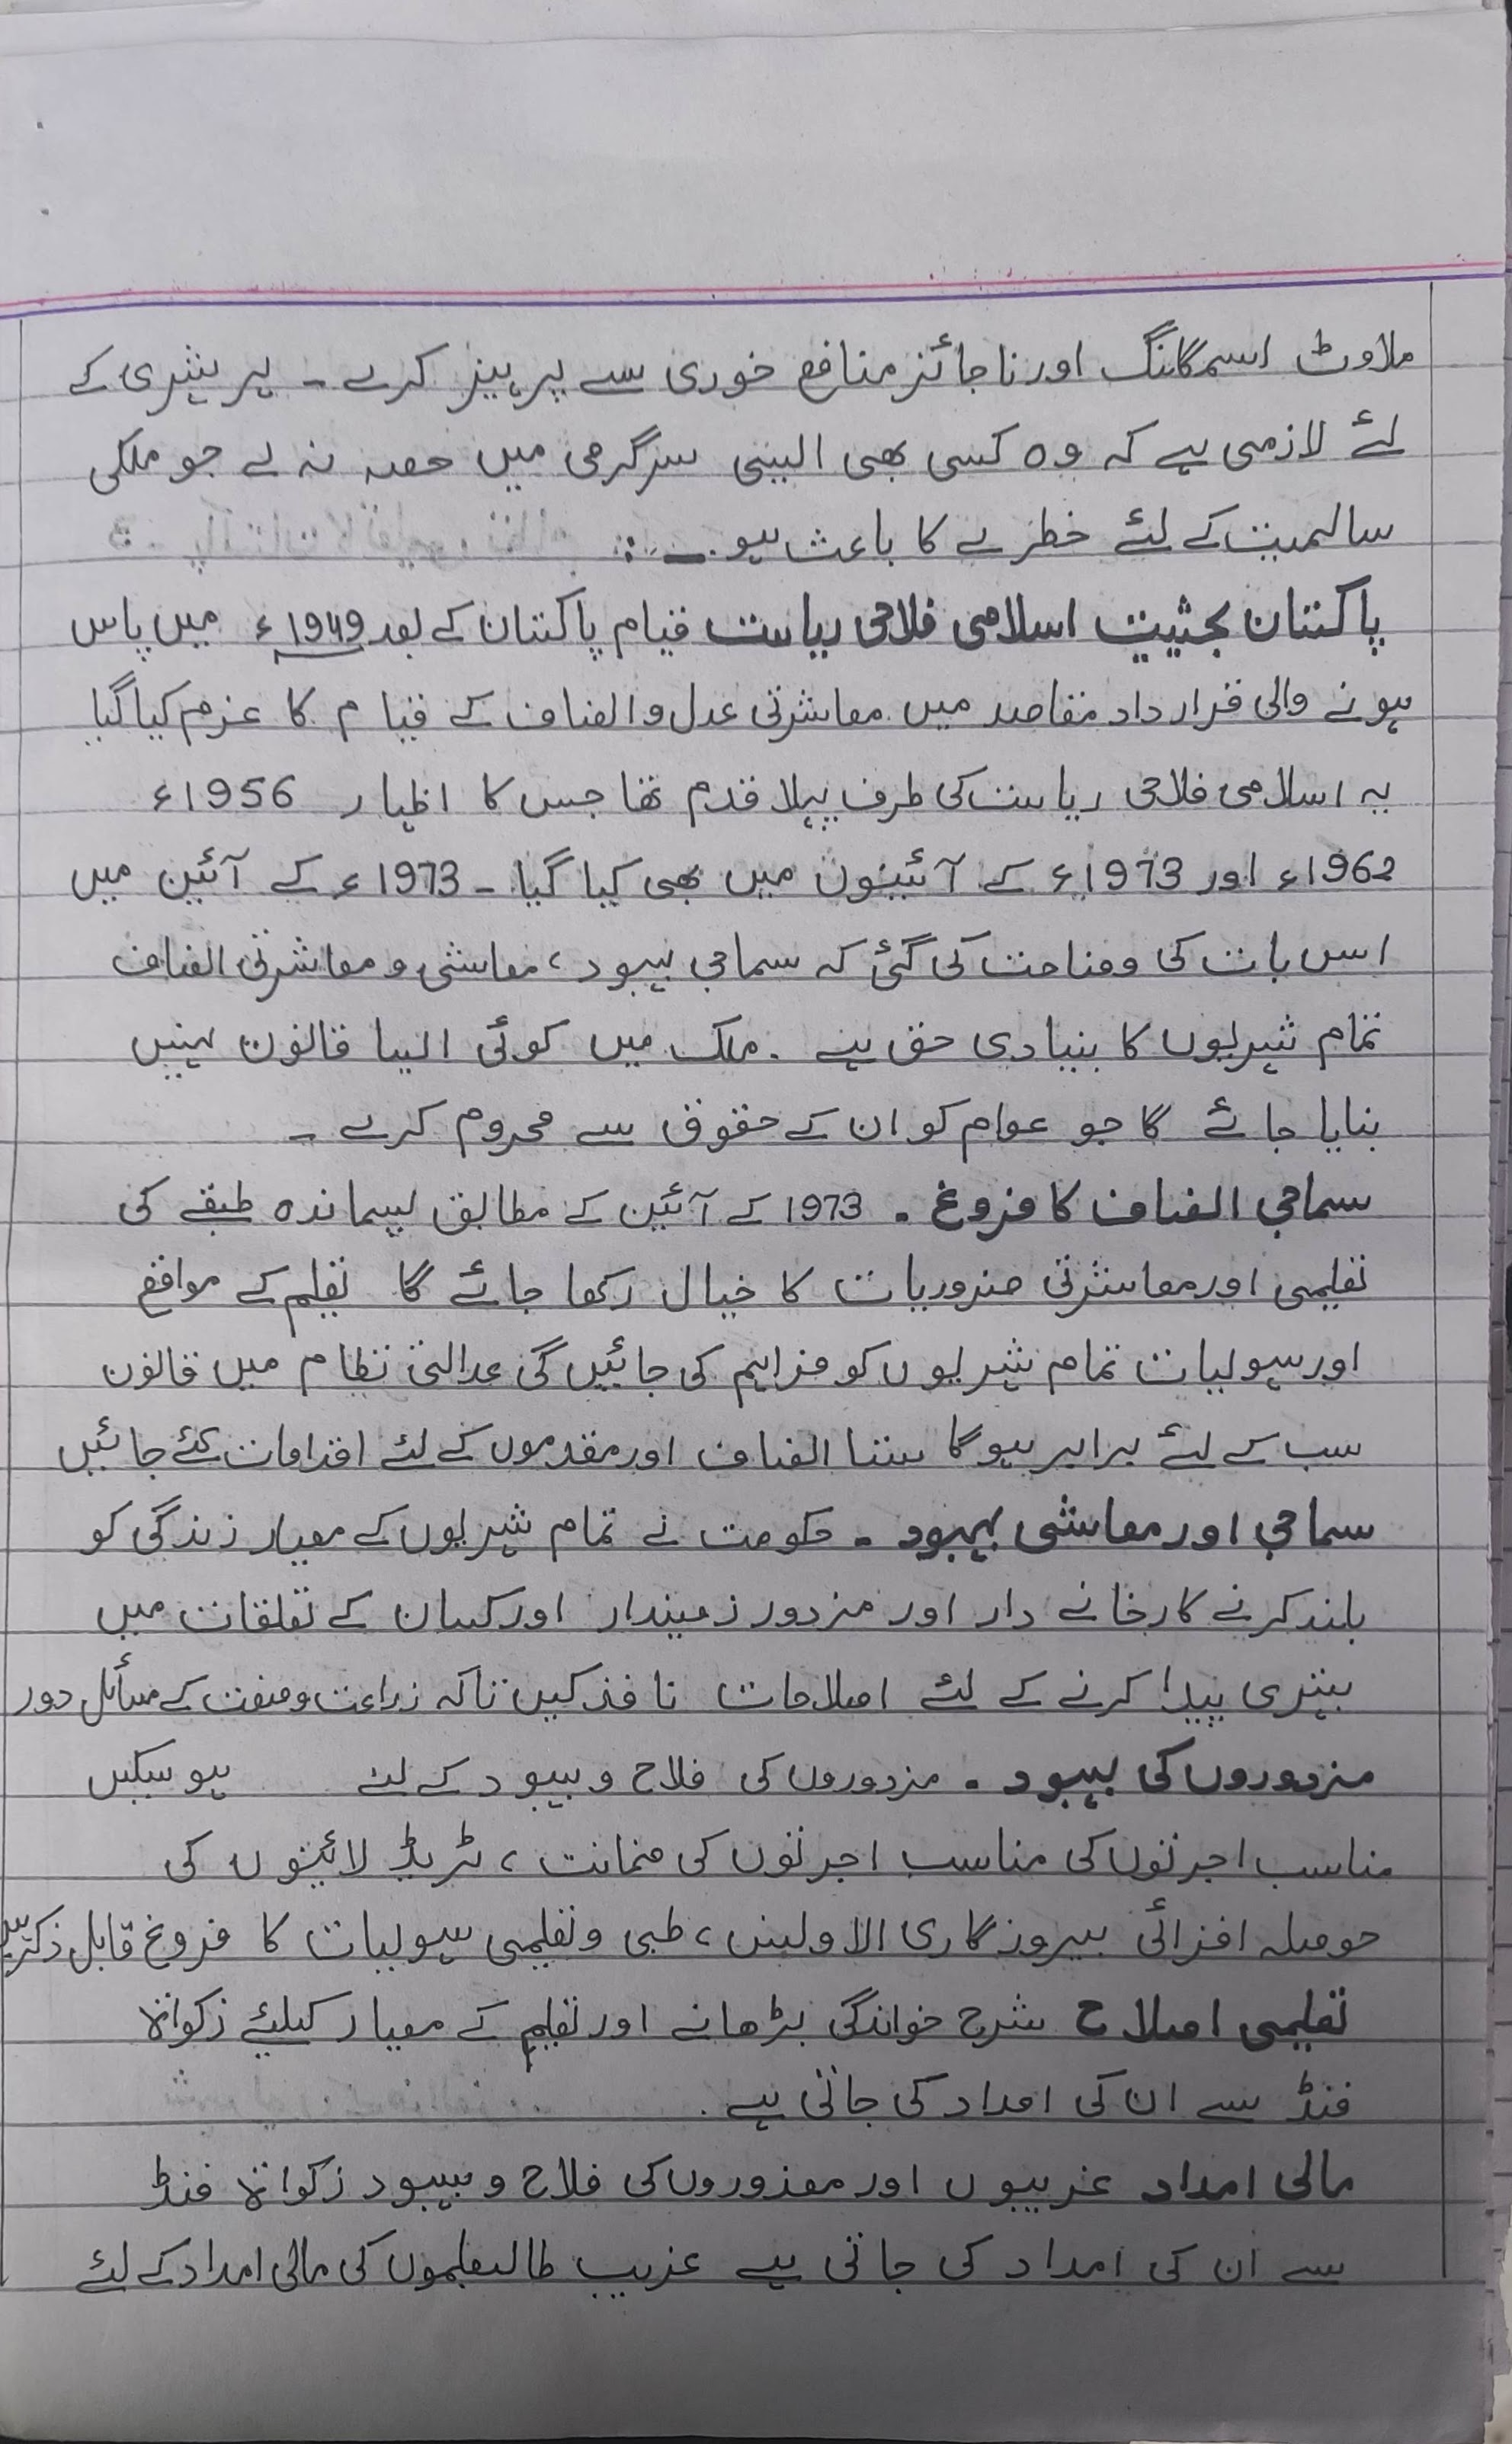 ملاوٹ اسمگلنگ اور ناجائز منافع خوری سے پرہیز کرے ۔ ہر شہری کے
لئے لازمی ہے کہ وہ کسی بھی ایسی سرگرمی میں حصہ نہ لے جو ملکی
سالمیت کے لئے خطرے کا باعث ہو ۔
پاکستان بحثیت اسلامی فلاحی ریاست قیام پاکستان کے بعد 1949ء میں پاس
ہونے والی قرارداد مقاصد میں معاشرتی عدل و انصاف کے قیام کا عزم کیا گیا
یہ اسلامی فلاحی ریاست کی طرف پہلا قدم تھا جس کا اظہار 1956ء
1962ء اور 1973ء کے آئینوں میں بھی کیا گیا ۔ 1973ء کے آئین میں
اس بات کی وضاحت کی گئی کہ سماجی بہبود ، معاشی و معاشرتی انصاف
تمام شہریوں کا بنیادی حق ہے ۔ ملک میں کوئی ایسا قانون نہیں
بنایا جائے گا جو عوام کو ان کے حقوق سے محروم کرے ۔
سماجی انصاف کا فروغ ۔ 1973 کے آئین کے مطابق پسماندہ طبقے کی
تعلیمی اور معاشرتی ضروریات کا خیال رکھا جائے گا تعلیم کے مواقع
اور سہولیات تمام شہریوں کو فراہم کی جائیں گی عدالتی نظام میں قانون
سب کے لئے برابر ہوگا سستا انصاف اور مقدموں کے لئے اقدامات کئے جائیں
سماجی اور معاشی بہبود ۔ حکومت نے تمام شہریوں کے معیار زندگی کو
بلند کرنے کارخانے دار اور مزدور زمیندار اور کسان کے تعلقات میں
بہتری پیدا کرنے کے لئے اصلاحات نافذ کیں تاکہ زراعت و صنعت کے مسائل دور
ہو سکیں
مزدوروں کی بہبود ۔ مزدوروں کی فلاح و بہبود کے لئے
مناسب اجرتوں کی مناسب اجرتوں کی ضمانت ، ٹریڈ لائینوں کی
حوصلہ افزائی بیروزگاری الاولینس ، طبی و تعلیمی سہولیات کا فروغ قابل ذکر ہے
تعلیمی اصلاح شرح خواندگی بڑھانے اور تعلیم کے معیار کیلئے زکواۃ
فنڈ سے ان کی امداد کی جاتی ہے ۔
مالی امداد غریبوں اور معذوروں کی فلاح و بہبود زکواۃ فنڈ
سے ان کی امداد کی جاتی ہے غریب طالبعلموں کی مالی امداد کے لئے